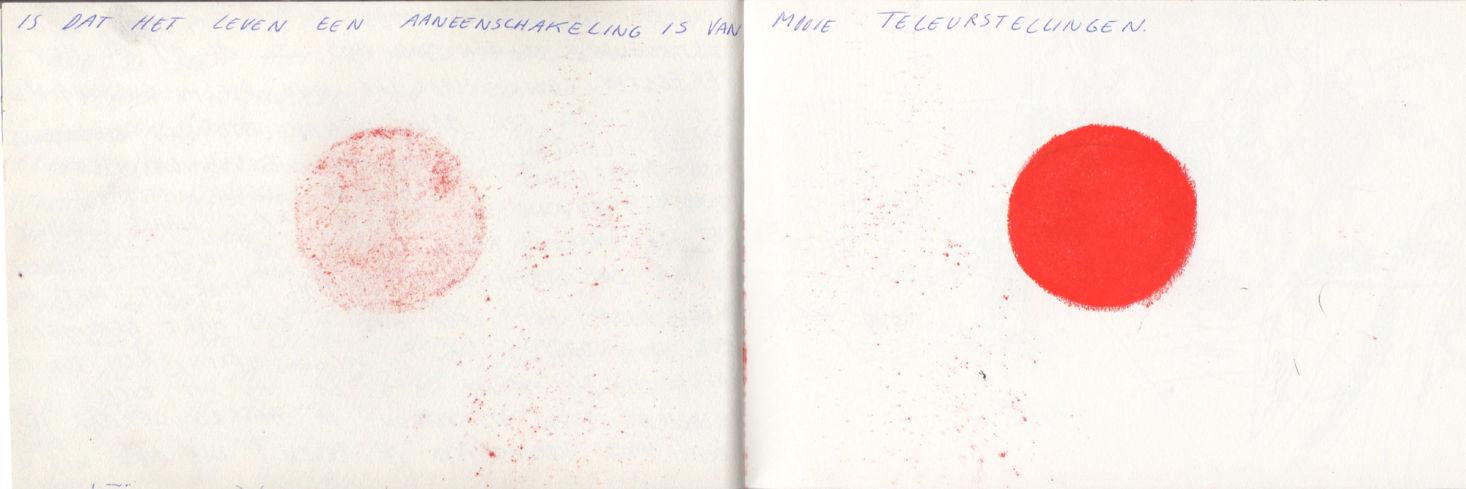 IS DAT HET LEVEN EEN AANEENSCHAKELING IS VAN MOOIE TELEURSTELLINGEN.